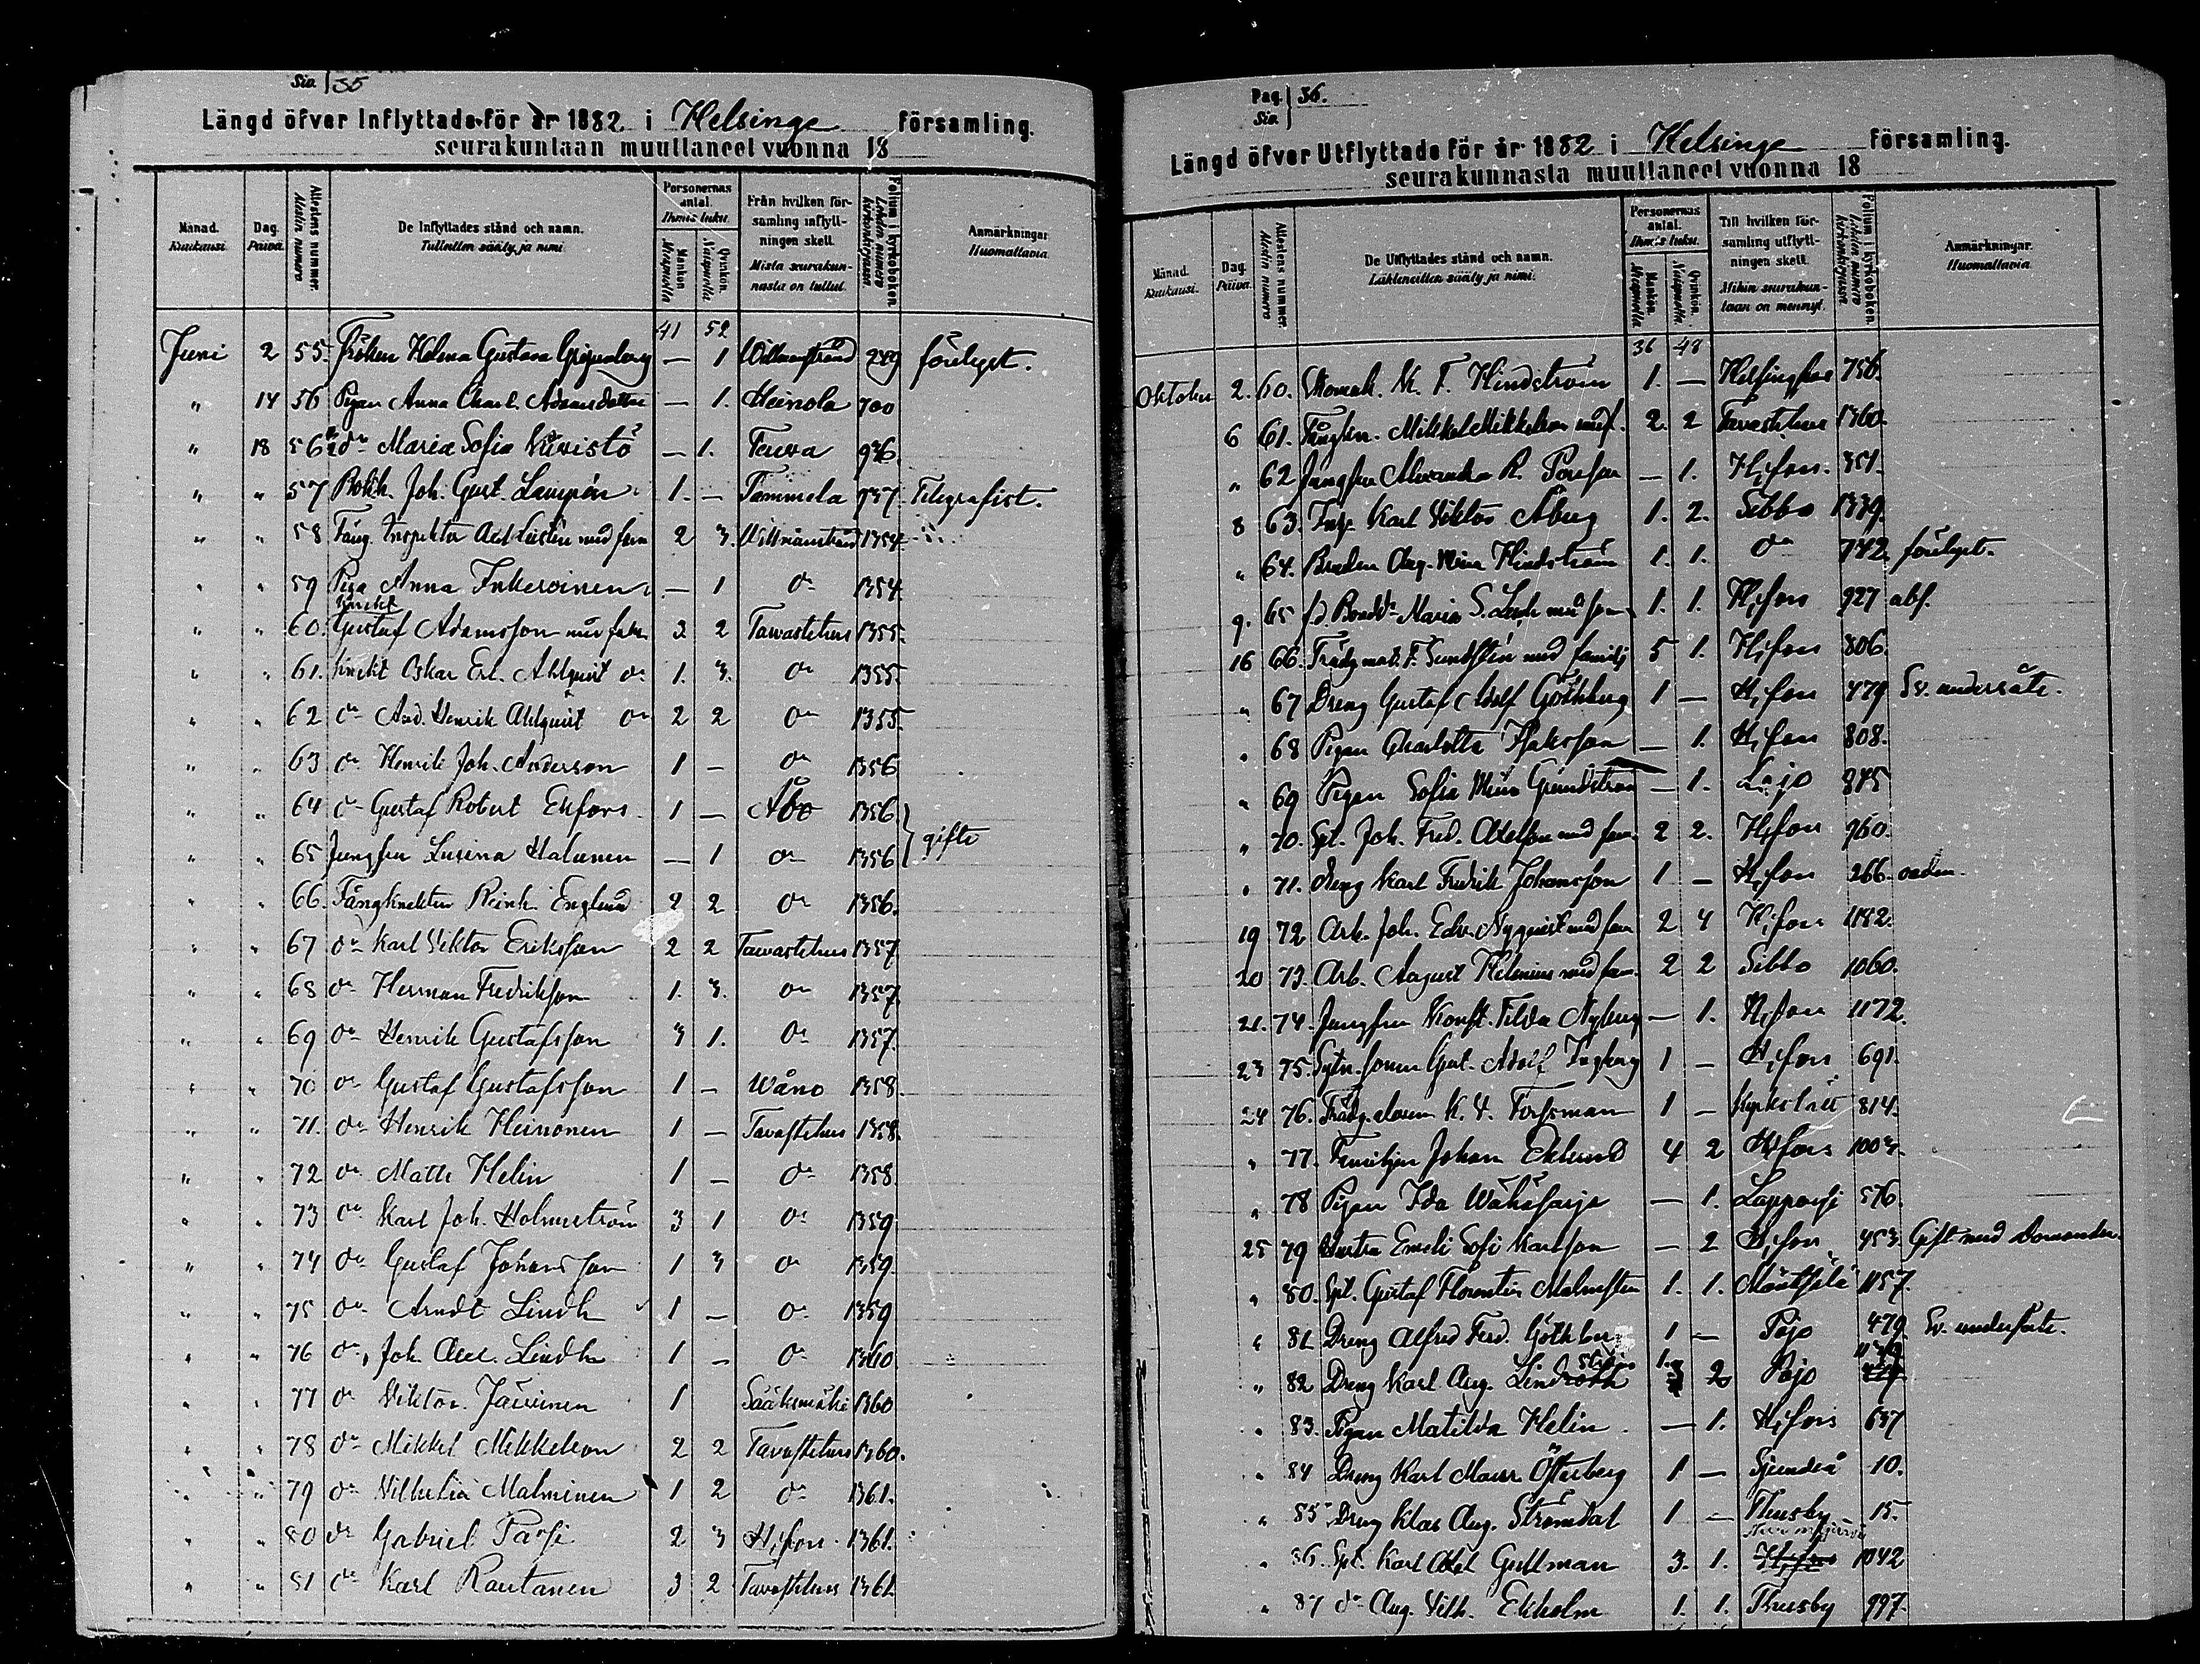 Siv. 35
Längd öfver Inflyttade för år 1882 i Helsinge församling.
seurakuntaan muuttaneet vuonna 18
Månad. Kuukausi.
Dag. Päivä.
Attestens nummer. Alistin numero
De Inflyttades stånd och namn. Tulleitten sääty ja nimi
Personernas antal. Ihmis luku.
Mankön Miespuolia
Qvinkön. Naispuolia
Från hvilken församling inflyttningen skett. Mista seurakunnasta on tullut.
Folium i kyrkoboken. Lehden numero kirkonkirjassa
Anmärkningar Huomattavia
41 52
Juni 2 55. Fröken Helena Gustava Gripenberg — 1 Willmanstrand 249 förelyst.
" 14 56 Pigan Anna Charl. Adamsdotter — 1. Heinola 700
" 18 56½ do Maria Sofia Kivistö — 1. Teuva 936
" " 57 Bokh. Joh. Gust. Lampén 1. — Tammela 937 Telegrafist.
" " 58 Fäng. Inspektor med fam 2 3. Willmanstrand 1354
" " 59 Piga Anna Inkeroinen — 1 do 1354
" " 60. Knekt Gustaf Adamsson med fam 3 2 Tawastehus 1355.
" " 61. Knekt Oskar Er. Ahlqvist do 1. 3. do 1355.
" " 62 do And. Henrik Ahlqvist do 2 2 do 1355
" " 63 do Henrik Joh. Anderson 1 — do 1356
" " 64 do Gustaf Robert Ekfors 1 — Åbo 1356 } gifte
" " 65 Jungfru Lusina Halunen — 1 do 1356
" " 66. Fångknekten Reinh. Englund 2 2 do 1356.
" " 67 do Karl Viktor Eriksson 2 2 Tawastehus 1357
" " 68 do Herman Fredrikson 1. 3. do 1357
" " 69 do Henrik Gustafsson 3 1. do 1357.
" " 70 do Gustaf Gustafsson 1 — Wånå 1358
" " 71. do Henrik Heinonen 1 — Tavastehus 1358.
" " 72 do Matts Helin 1 — do 1358
" " 73 do Karl Joh. Holmström 3 1 do 1359
" " 74 do Gustaf Johansson 1 3 do 1359.
" " 75 do Arndt Lindh 1 — do 1359
" " 76 do Joh. Lindh 1 — do 1360
" " 77 do Viktor Järvinen 1 Sääksmäki 1360
" " 78 do Mikkel Mikkelson 2 2 Tavastehus 1360.
" " 79 do Vilhelm Malminen 1 2 do 1361.
" " 80 do Gabriel Parsi 2 3 H.fors 1361.
" " 81 do Karl Rautanen 3 2 Tavastehus 1361
Pag. Siv. 36.
Längd öfver Utflyttade för år 1882 i Helsinge församling.
seurakunnasta muuttaneet vuonna 18
Månad. Kuukausi.
Dag. Päivä.
Attestens nummer. Alistin numero
De Utflyttades stånd och namn. Lähteneitten sääty ja nimi.
Personernas antal. Ihmis luku.
Mankön. Miespuolia
Qvinkön. Naispuolia
Till hvilken församling utflyttningen skett. Mihin seurakuntaan on mennyt.
Folium i kyrkoboken. Lehden numero kirkonkirjassa
Anmärkningar. Huomattavia.
36 48
Oktober 2. 60. Skomak. K. F. Hindström 1. — Helsingfors 756.
6 61. Mikkel Mikkelson med f. 2. 2 Tavastehus 1360.
" 62 Jungfru Alexandra R. — 1. H.fors. 351.
8 63. Karl Viktor Åberg 1. 2. Sibbo 1339.
" 64. Hindström 1. 1. do 742 förelyst.
9. 65 Maria S. med son 1. 1. H.fors 927 abs.
16 66. Trädg.mäst. F. med familj 5 1. H.fors 806.
" 67 Dreng Gustaf Adolf Göthberg 1 — H.fors 479 Sv. undersåte.
" 68 Pigan Charlotta Isaksson — 1. H.fors 808.
" 69 Pigan Sofia Grundström — 1. Lojo 845
" 70. Spl. Joh. Fred. Axelson med fam. 2 2. H.fors 960.
" 71. Dreng Karl Fredrik Johansson 1 — H.fors 266.
19 72 Arb. Joh. Edv. Nyqvist med fam 2 4 H.fors 1182.
20 73. Arb. August Helenius med fam. 2 2 Sibbo 1060.
21. 74. Jungfru Konst. Tilda Nyberg — 1. H.fors 1172.
23 75. Sytn.sonen Gust. Adolf Ingberg 1 — H.fors 691.
24 76. K. V. Forsman 1 — Kyrkslätt 814.
" 77. Familjen Johan Eklund 4 2 H.fors 1003.
" 78 Pigan Ida Wähäsarja — 1. Lappersi 576.
25 79 Hustru Emeli Sofi Karlson — 2 H.fors 453. Gift med
" 80. Spl. Gustaf Florentin Malmsten 1. 1. Mäntsälä 1157.
" 81 Dreng Alfred Ferd. Göthberg 1 — Pojo 479. Sv. undersåte.
" 82 Dreng Karl Aug. Lindroth 1. 2 Pojo
" 83. Pigan Matilda Helin — 1. H.fors 637
" 84 Dreng Karl Österberg 1 — Sjundeå 10.
" 85 Dreng Klas Aug. Strömdal 1 — Thusby 15.
" 86. Spl. Karl Axel Gullman 3. 1. Nurmijärvi H.fors 1042
" 87 do Aug. Vilh. Ekholm 1. 1. Thusby 997.